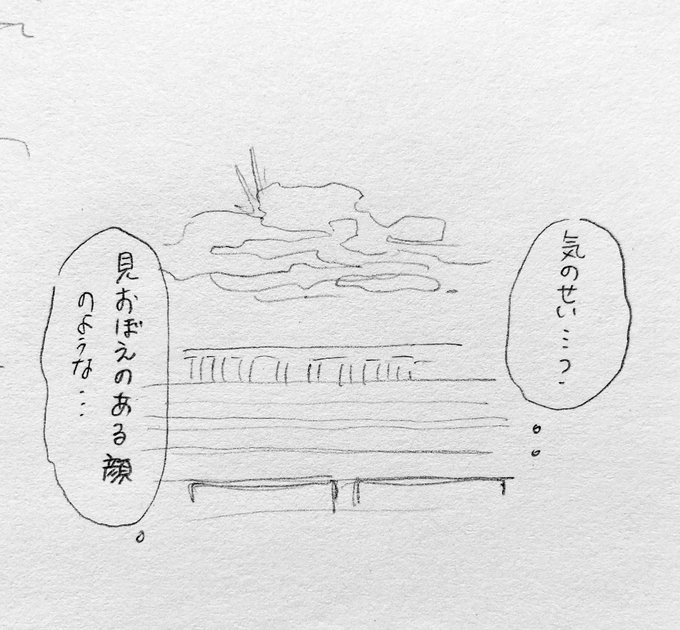 気のせい…?
見おぼえのある顔
のような…